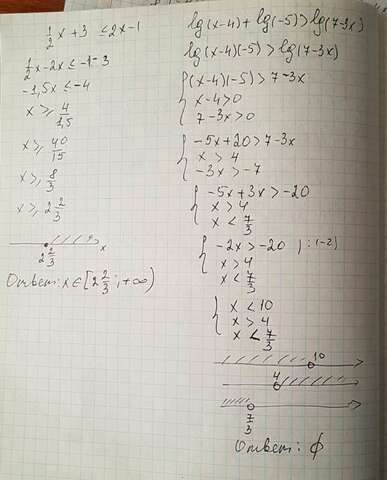 1/2 x + 3 ≤ 2x - 1
1/2 x - 2x ≤ -1 - 3
-1,5x ≤ -4
x ≥ 4/1,5
x ≥ 40/15
x ≥ 8/3
x ≥ 2 2/3
2 2/3 x
Ответ: x ∈ [2 2/3; +∞)
lg(x-4) + lg(-5) > lg(7-3x)
lg(x-4)(-5) > lg(7-3x)
(x-4)(-5) > 7-3x
x-4>0
7-3x>0
-5x+20 > 7-3x
x > 4
-3x > -7
-5x+3x > -20
x > 4
x < 7/3
-2x > -20 /:(-2)
x > 4
x < 7/3
x < 10
x > 4
x < 7/3
10
4
7/3
Ответ: ϕ